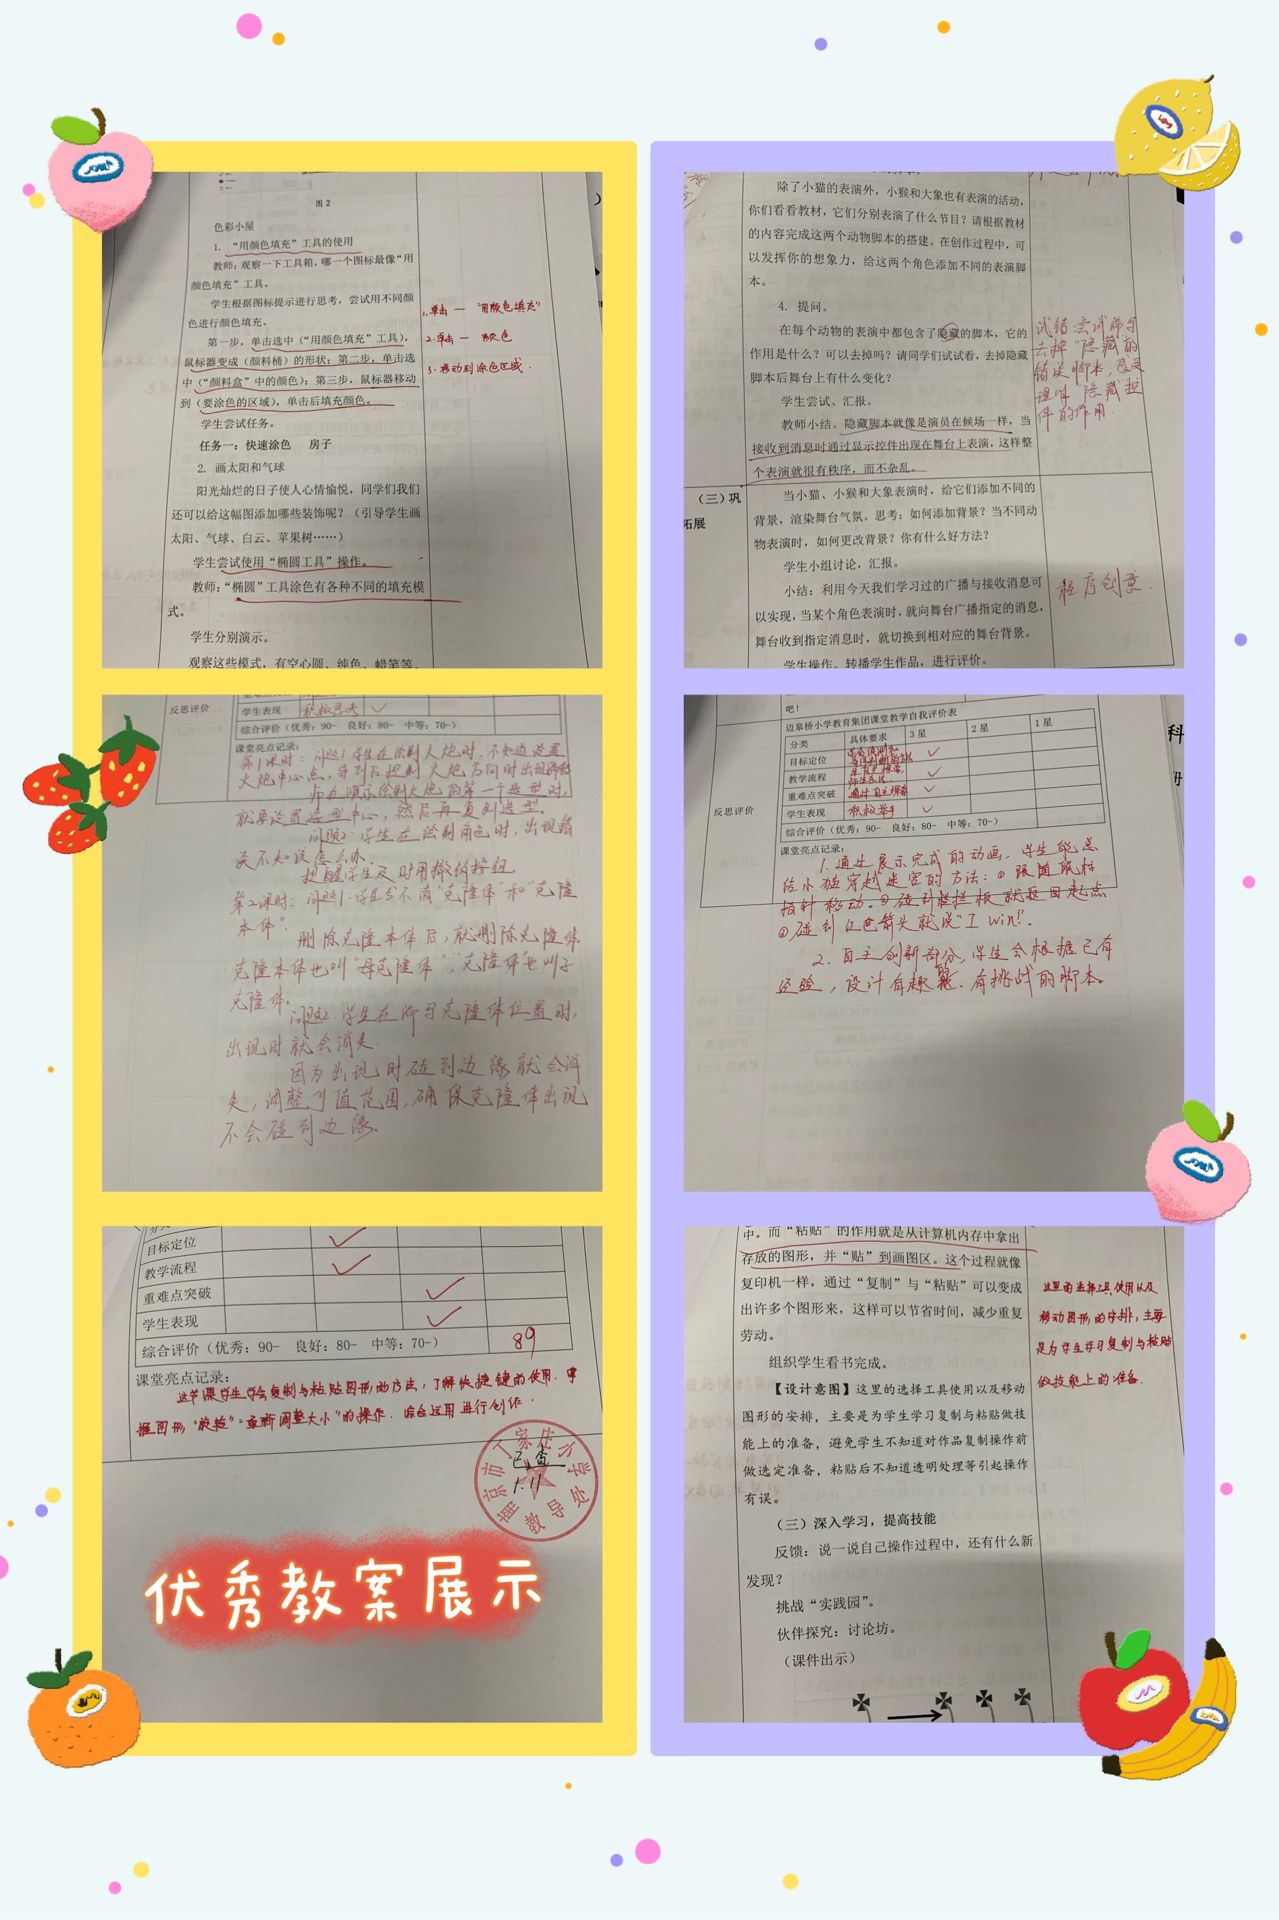 图2
色彩小屋
1. “用颜色填充”工具的使用
教师：观察一下工具箱，哪一个图标最像“用
颜色填充”工具。
学生根据图标提示进行思考，尝试用不同颜
色进行颜色填充。
第一步，单击选中（“用颜色填充”工具），
鼠标器变成（颜料桶）的形状；第二步，单击选
中（“颜料盒”中的颜色）；第三步，鼠标器移动
到（要涂色的区域），单击后填充颜色。
学生尝试任务。
任务一：快速涂色 房子
2. 画太阳和气球
阳光灿烂的日子使人心情愉悦，同学们我们
还可以给这幅图添加哪些装饰呢？（引导学生画
太阳、气球、白云、苹果树……）
学生尝试使用“椭圆工具”操作。
教师：“椭圆”工具涂色有各种不同的填充模
式。
学生分别演示。
观察这些模式，有空心圆、纯色、蜡笔等。
1.单击一“用颜色填充”
2.单击一 颜色
3.移动到涂色区域.
除了小猫的表演外，小猴和大象也有表演的活动，
你们看看教材，它们分别表演了什么节目？请根据教材
的内容完成这两个动物脚本的搭建。在创作过程中，可
以发挥你的想象力，给这两个角色添加不同的表演脚
本。
4. 提问。
在每个动物的表演中都包含了隐藏的脚本，它的
作用是什么？可以去掉吗？请同学们试试看，去掉隐藏
脚本后舞台上有什么变化？
学生尝试、汇报。
教师小结。隐藏脚本就像是演员在候场一样，当
接收到消息时通过显示控件出现在舞台上表演，这样整
个表演就很有秩序，而不杂乱。
去掉“隐藏”的
错误脚本，
理解“隐藏”控
件的作用.
（三）巩
拓展
当小猫、小猴和大象表演时，给它们添加不同的
背景，渲染舞台气氛。思考：如何添加背景？当不同动
物表演时，如何更改背景？你有什么好方法？
学生小组讨论，汇报。
小结：利用今天我们学习过的广播与接收消息可
以实现，当某个角色表演时，就向舞台广播指定的消息，
舞台收到指定消息时，就切换到相对应的舞台背景。
学生操作。转播学生作品，进行评价。
程序创意.
反思评价
重难点突破
学生表现
综合评价（优秀：90- 良好：80- 中等：70-）
课堂亮点记录：
第1课时：问题1：学生在绘制火炮时，不知道设置
火炮中心点，等到后控制火炮方向时出现
师在演示绘制火炮的第一个造型时，
就要设置造型中心，然后再复制造型。
问题2：学生在绘制角色时，出现错
误不知该怎么办.
提醒学生及时用撤销按钮
第2课时：问题1：学生分不清“克隆体”和“克隆
本体”.
删除克隆本体后，就删除克隆体
克隆本体也叫“母克隆体”，克隆体也叫子
克隆体.
问题2：学生在 克隆体位置时，
出现时就会消失.
因为出现时碰到边缘就会消
失，调整 值范围，确保克隆体出现
不会碰到边缘.
吧！
迈皋桥小学教育集团课堂教学自我评价表
分类 具体要求 3星 2星 1星
目标定位
教学流程
重难点突破 通过自主探索
学生表现 积极举手
综合评价（优秀：90- 良好：80- 中等：70-）
反思评价
课堂亮点记录：
1. 通过展示完成的动画，学生能总
结小猫穿越迷宫的方法：①跟随鼠标
指针移动。②碰到栏杆板就返回起点
③碰到红色箭头就说“I Win!”.
2. 自主创新部分，学生会根据已有
经验，设计有趣的、有挑战的脚本。
科
目标定位
教学流程
重难点突破
学生表现
综合评价（优秀：90- 良好：80- 中等：70-） 89
课堂亮点记录：
这节课学生学会复制与粘贴图形的方法，了解快捷键的使用.掌
握图形“旋转”“重新调整大小”的操作.综合运用进行创作.
南京市丁家庄小学
教导处
已查
1.11
中。而“粘贴”的作用就是从计算机内存中拿出
存放的图形，并“贴”到画图区。这个过程就像
复印机一样，通过“复制”与“粘贴”可以变成
出许多个图形来，这样可以节省时间，减少重复
劳动。
组织学生看书完成。
【设计意图】这里的选择工具使用以及移动
图形的安排，主要是为学生学习复制与粘贴做技
能上的准备，避免学生不知道对作品复制操作前
做选定准备，粘贴后不知道透明处理等引起操作
有误。
（三）深入学习，提高技能
反馈：说一说自己操作过程中，还有什么新
发现？
挑战“实践园”。
伙伴探究：讨论坊。
（课件出示）
这里的选择工具使用以及
移动图形的安排，主要
是为学生学习复制与粘贴
做技能上的准备.
优秀教案展示